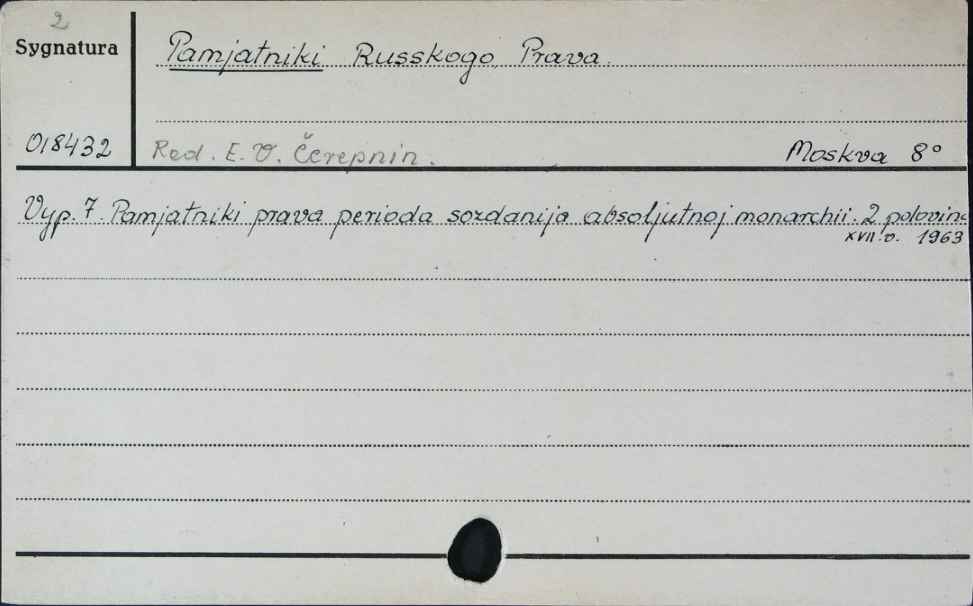 2
Sygnatura
Pamjatniki Russkogo Prava.
018432
Red. E. V. Čerepnin.
Moskva 8°
Vyp. 7. Pamjatniki prava perioda sozdanija absoljutnoj monarchii. 2 polovina
XVII. v. 1963